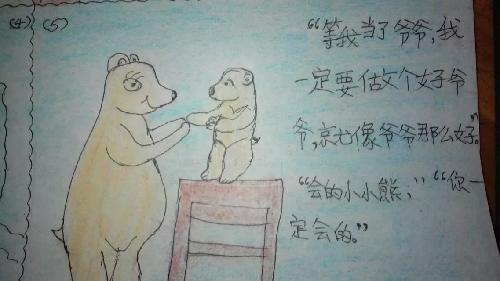 (4) (5)
“等我当了爷爷，我
一定要做个好爷
爷，就像爷爷那么好。”
“会的小小熊，”“你一
定会的。”